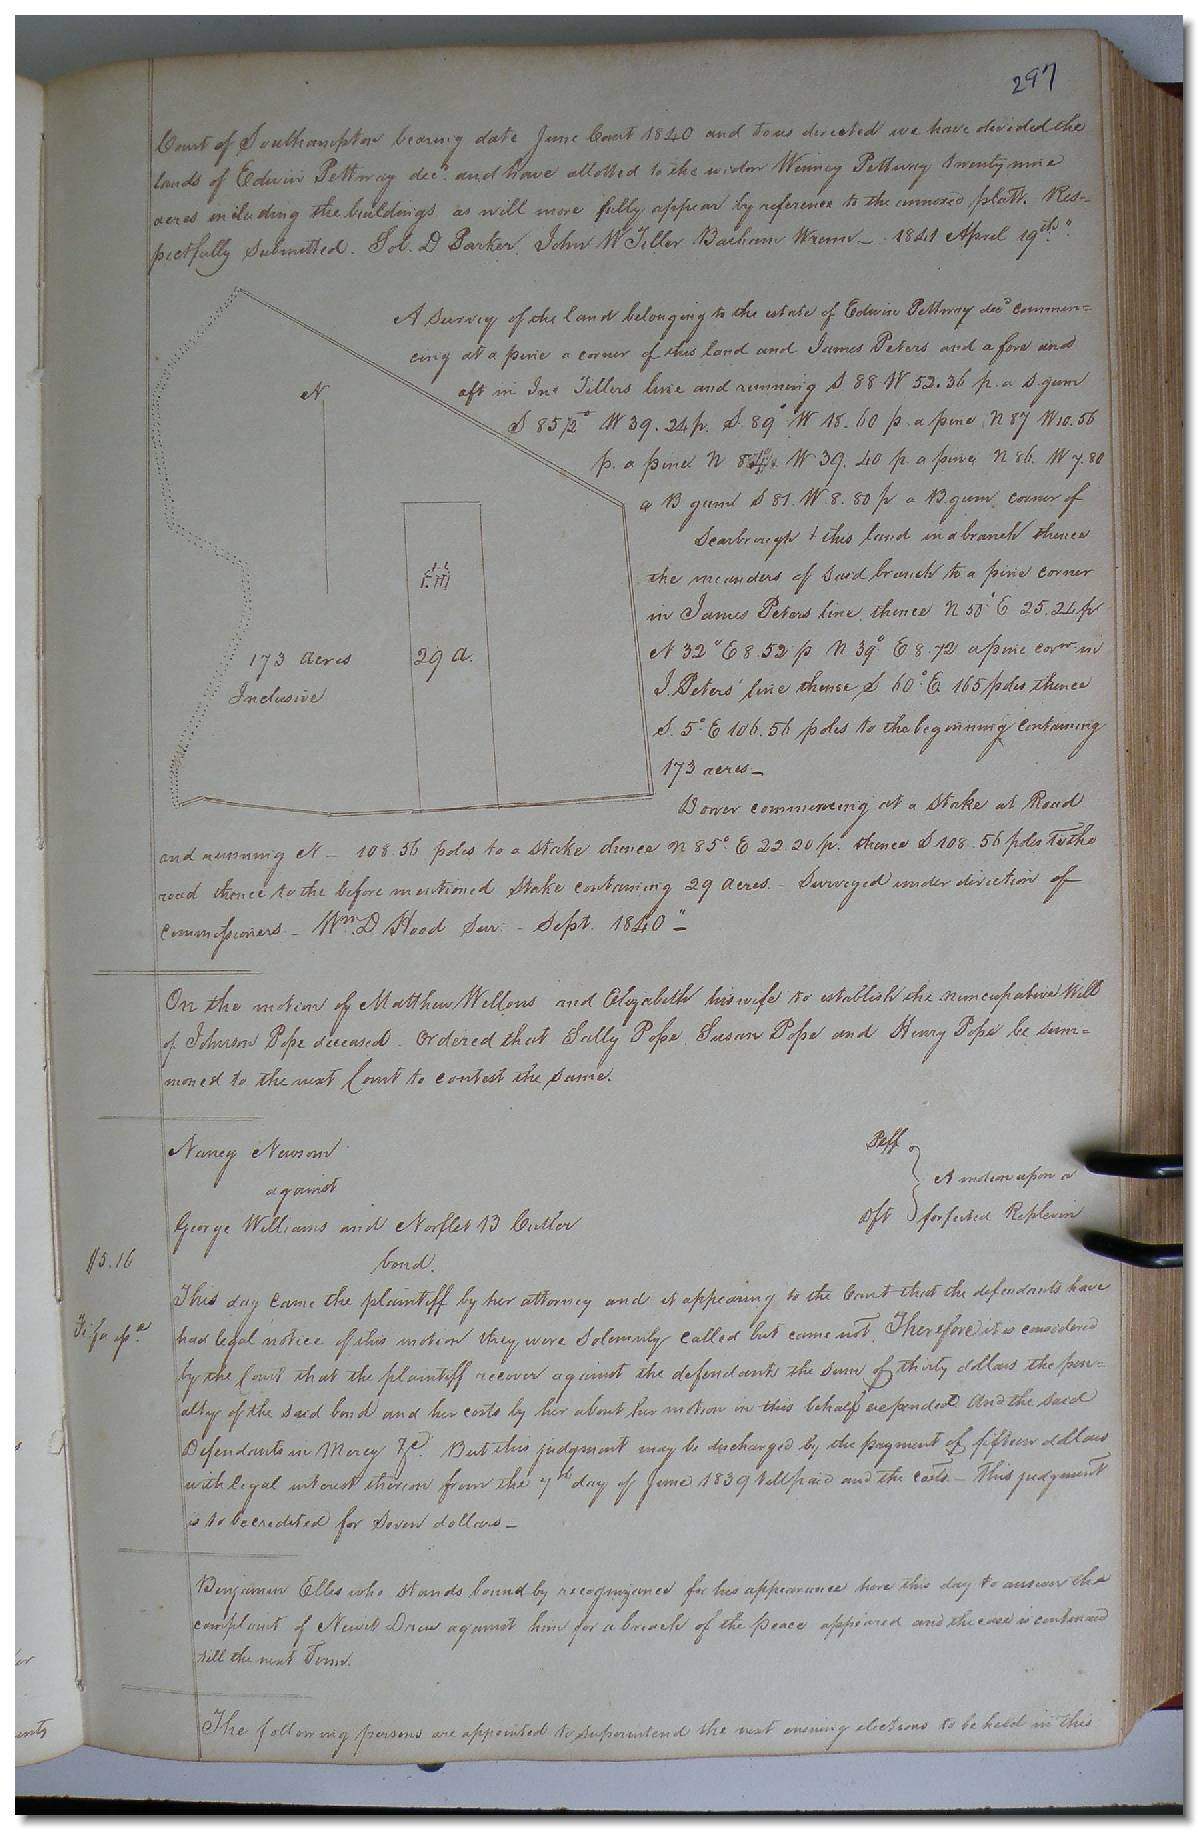 297
Court of Southampton bearing date June Court 1840 and to us directed we have divided the
lands of Edwin Pettway decd. and have allotted to the widow Winney Pettway twenty nine
acres including the buildings as will more fully appear by reference to the annexed platt. Res=
pectfully Submitted. Sol. D Parker, John W Teller Basham Wrenn - 1841 April 19th"
A survey of the land belonging to the estate of Edwin Pettway decd commen=
cing at a pine a corner of this land and James Peters and a fore and
aft in Tellers line and running S 88 W 52.36 p. a S. gum
S 85½° W 39.24 p. S. 89° W 18.60 p. a pine N 87 W 10.56
p. a pine N W 39.40 p. a pine N 86. W 7.80
a B gum S 81. W. 8.80 p a B. gum corner of
Scarbrough & this land in a branch thence
the meanders of said branch to a pine corner
in James Peters line, thence N 50° E 25.24 p
N 32° E 8.52 p N 39° E 8.72 a pine corr in
J. Peters' line thence S 60° E 165 poles thence
S. 5° E 106.56 poles to the beginning containing
173 acres -
N
173 acres
Inclusive
29 a.
Dower commencing at a Stake at Road
and running N - 108.56 poles to a Stake thence N 85° E 22.20 p. thence S 108.56 poles to the
road thence to the before mentioned Stake containing 29 acres. - Surveyed under direction of
Commissioners - Wm. D. Hood Sur. - Sept. 1840" -
On the motion of Matthew Wellons and Elizabeth his wife to establish the nuncupative Will
of Johnson Pope deceased. Ordered that Sally Pope Susan Pope and Henry Pope be sum=
moned to the next Court to contest the same.
Nancy Newsom Plff
against A motion upon a
George Williams and Norflet B Cutler Dft forfeited Replevin
bond.
$5.16
This day came the plaintiff by her attorney and it appearing to the Court that the defendants have
Fi fa
had legal notice of this motion they were Solemnly called but came not. Therefore it is considered
by the Court that the plaintiff recover against the defendants the sum of thirty dollars the pen=
alty of the said bond and her costs by her about her motion in this behalf expended And the said
Defendants in Mercy &c. But this judgment may be discharged by the payment of fifteen dollars
with legal interest thereon from the 7th day of June 1839 till paid and the costs. - This judgment
is to be credited for Seven dollars -
Benjamin Ellis who stands bound by recognizance for his appearance here this day to answer the
complaint of Newit Drew against him for a breach of the peace appeared and the case is continued
till the next Term.
The following persons are appointed to superintend the next ensuing elections to be held in this